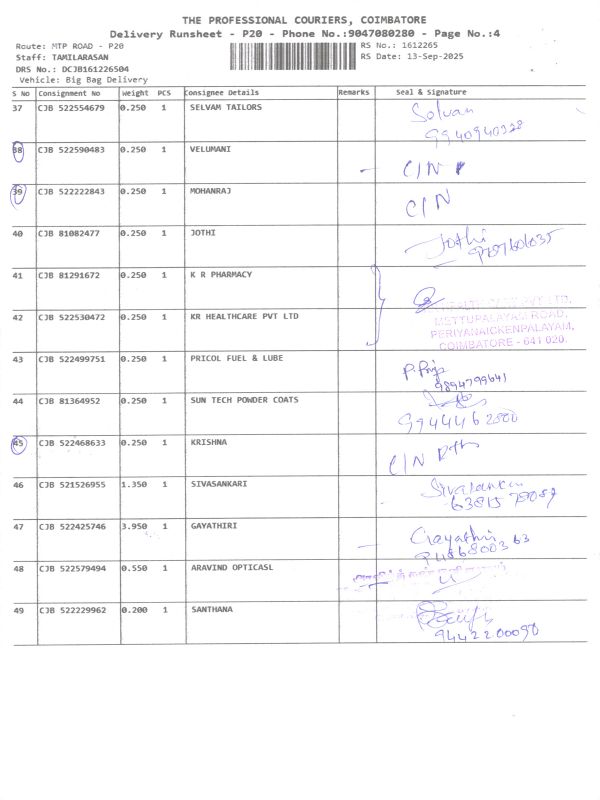 THE PROFESSIONAL COURIERS, COIMBATORE
Delivery Runsheet - P20 - Phone No.:9047080280 - Page No.:4
Route: MTP ROAD - P20
RS No.: 1612265
Staff: TAMILARASAN
RS Date: 13-Sep-2025
DRS No.: DCJB161226504
Vehicle: Big Bag Delivery
S No Consignment No Weight PCS Consignee Details Remarks Seal & Signature
37 CJB 522554679 0.250 1 SELVAM TAILORS Selvan
9940940328
38 CJB 522590483 0.250 1 VELUMANI C/N
39 CJB 522222843 0.250 1 MOHANRAJ C/N
40 CJB 81082477 0.250 1 JOTHI Jothi
41 CJB 81291672 0.250 1 K R PHARMACY
42 CJB 522530472 0.250 1 KR HEALTHCARE PVT LTD
PVT LTD,
METTUPALAYAM ROAD,
PERIYANAICKENPALAYAM,
COIMBATORE - 641 020.
43 CJB 522499751 0.250 1 PRICOL FUEL & LUBE P. Priya
9894799641
44 CJB 81364952 0.250 1 SUN TECH POWDER COATS
9944462800
45 CJB 522468633 0.250 1 KRISHNA C/N
46 CJB 521526955 1.350 1 SIVASANKARI Sivasankari
47 CJB 522425746 3.950 1 GAYATHIRI Gayathiri
48 CJB 522579494 0.550 1 ARAVIND OPTICASL
49 CJB 522229962 0.200 1 SANTHANA
9442200090